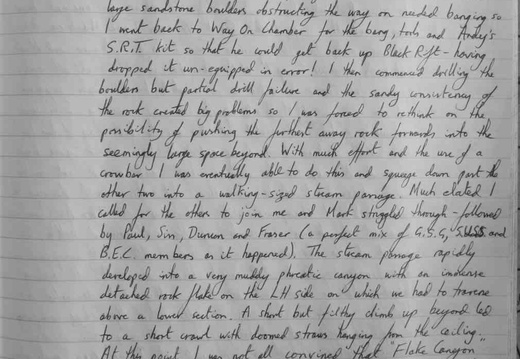 large sandstone boulders obstructing the way on needed banging so
I went back to Way On Chamber for the bang, tools and Andy's
S.R.T. kit so that he could get back up Black Rift - having
dropped it un-equipped in error! I then commenced drilling the
boulders but partial drill failure and the sandy consistency of
the rock created big problems so I was forced to rethink on the
possibility of pushing the furthest away rock forwards into the
seemingly large space beyond. With much effort and the use of a
crowbar I was eventually able to do this and squeeze down past the
other two into a walking-sized stream passage. Much elated I
called for the others to join me and Mark struggled through - followed
by Paul, Sin, Duncan and Fraser (a perfect mix of G.S.G, SUSS and
B.E.C. members as it happened). The stream passage rapidly
developed into a very muddy phreatic canyon with an immense
detached rock flake on the LH side on which we had to traverse
above a lower section. A short but filthy climb up beyond led
to a short crawl with doomed straws hanging from the ceiling.
At this point I was not all convinced that "Flake Canyon"